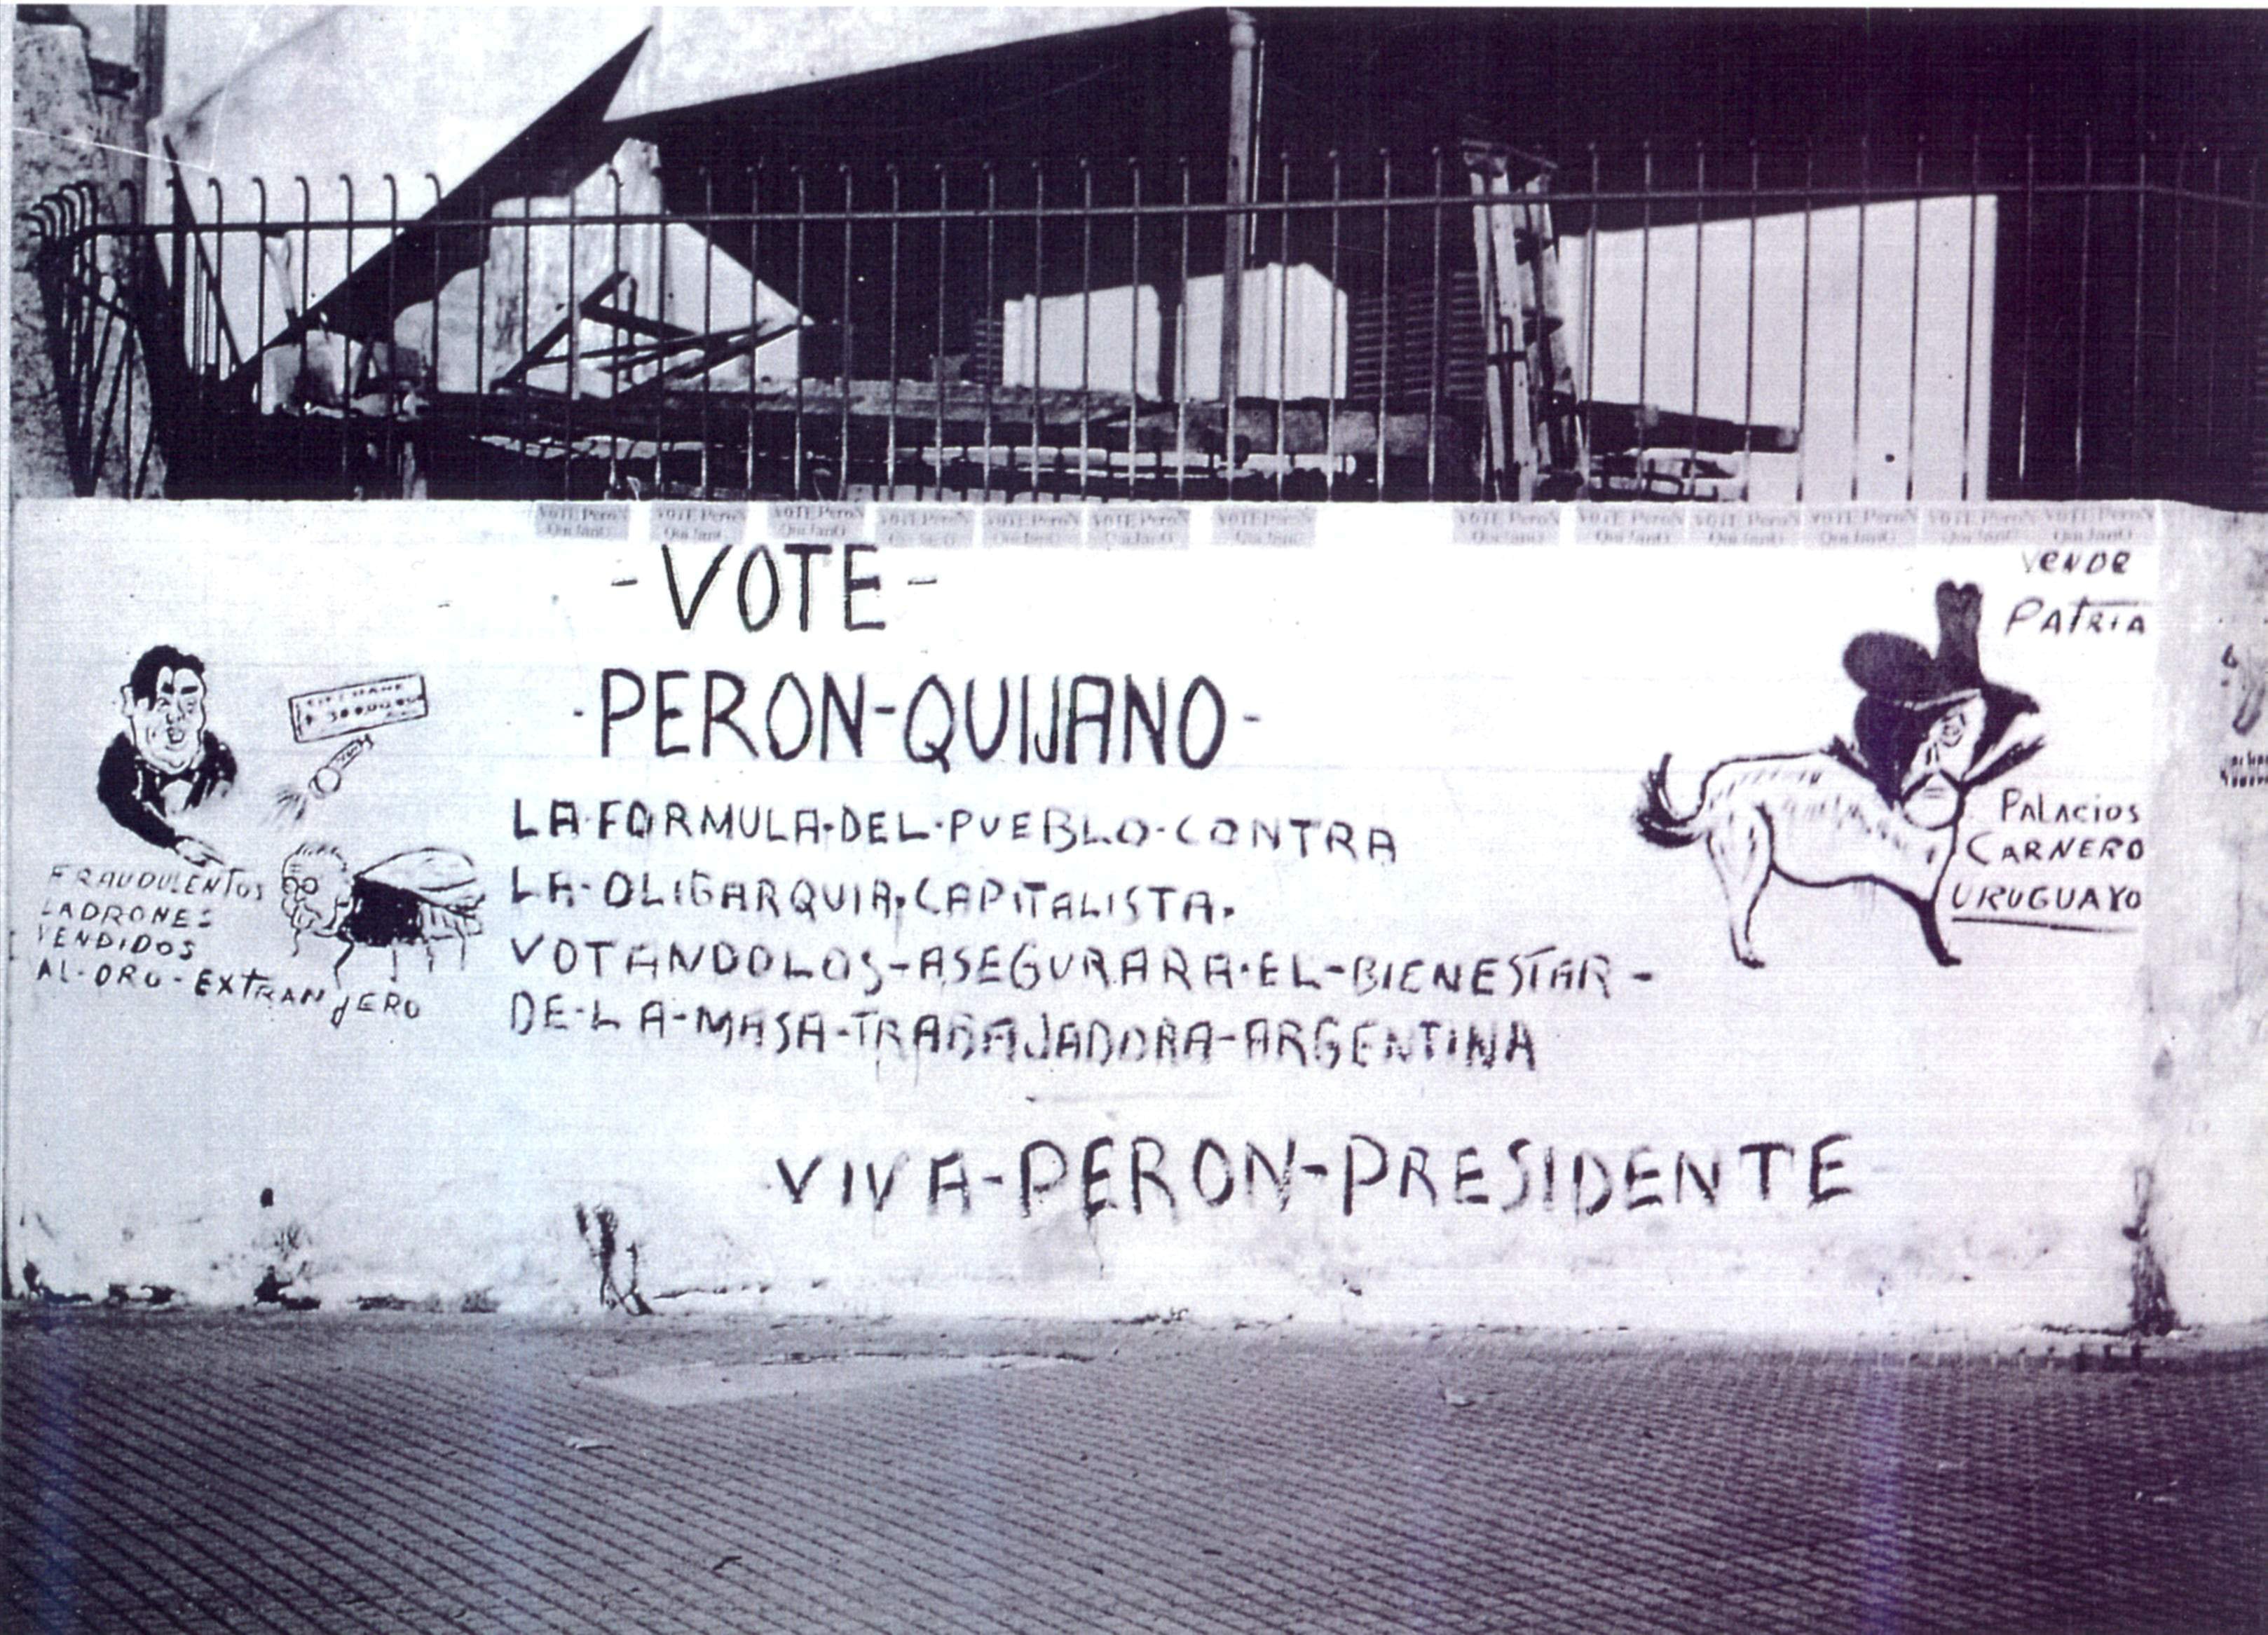 VOTE PeroN
QuiJanO
VOTE PeroN
QuiJanO
VOTE PeroN
QuiJanO
VOTE PeroN
QuiJanO
VOTE PeroN
QuiJanO
VOTE PeroN
QuiJanO
VOTE PeroN
QuiJanO
VOTE PeroN
QuiJanO
VOTE PeroN
QuiJanO
VOTE PeroN
QuiJanO
VOTE PeroN
QuiJanO
VOTE PeroN
QuiJanO
VOTE PeroN
QuiJanO
-VOTE-
-PERON-QUIJANO-
LA·FORMULA·DEL·PUEBLO·CONTRA
LA·OLIGARQUIA·CAPITALISTA.
VOTANDOLOS-ASEGURARA·EL-BIENESTAR-
DE·LA-MASA-TRABAJADORA-ARGENTINA
VIVA-PERON-PRESIDENTE
FRAUDULENTOS
LADRONES
VENDIDOS
AL-ORO-EXTRANJERO
VENDE
PATRIA
PALACIOS
CARNERO
URUGUAYO